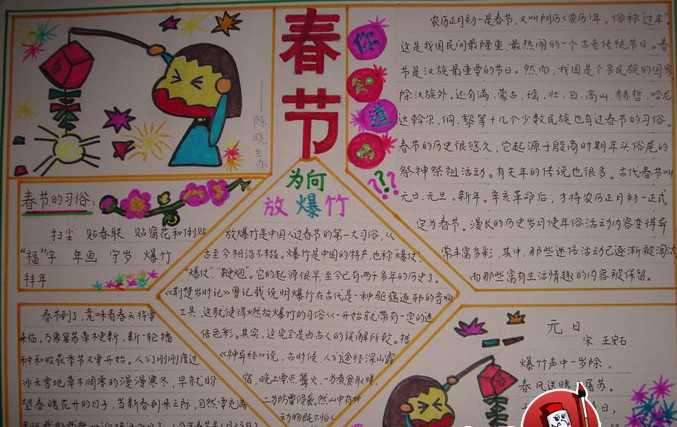 春节
你
知
道
???
陈晓兰办
农历正月初一是春节,又叫阴历(农历)年,俗称过年。
这是我国民间最隆重、最热闹的一个古老传统节日。春
节是汉族最重要的节日。然而,我国是个多民族的国家
除汉族外,还有满、蒙古、瑶、壮、白、高山、赫哲、哈尼
达斡尔、侗、黎等十几个少数民族也有过春节的习俗。
春节的历史很悠久,它起源于殷商时期年头岁尾的
祭神祭祖活动。有关年的传说也很多。古代春节叫
元日、元旦、新年。辛亥革命后,才将农历正月初一正式
定为春节。漫长的历史岁月使年俗活动内容变得异
常丰富多彩,其中,那些迷信活动已逐渐被淘汰
而那些富有生活情趣的内容被保留。
春节的习俗:
扫尘 贴春联 贴窗花和倒贴
“福”字 年画 守岁 爆竹
拜年
为何
放爆竹
放爆竹是中国人过春节的第一大习俗,从
古至今相沿不移。爆竹是中国的特产,也称“爆仗”、
“炮仗”、“鞭炮”。它的起源很早,至今已有两千多年的历史了。
《荆楚岁时记》曾记载说明爆竹在古代是一种驱瘟逐邪的音响
工具,这就使得燃放爆竹的习俗从一开始就带有一定的迷
信色彩。其实,这完全是由古人的误解所致。据
《神异经》说,古时候,人们途经深山露
宿,晚上要点篝火,一为煮食取暖,
二为防兽侵袭。然山中有种
动物既不怕人
春节到了,意味着春天将要
来临,万象复苏草木更新,新一轮播
种和收获季节又要开始。人们刚刚度过
冰天雪地草木凋零的漫漫寒冬,早就盼
望春暖花开的日子,当新春到来之际,自然要充满
元日
宋 王安石
爆竹声中一岁除,
春风送暖入屠苏。